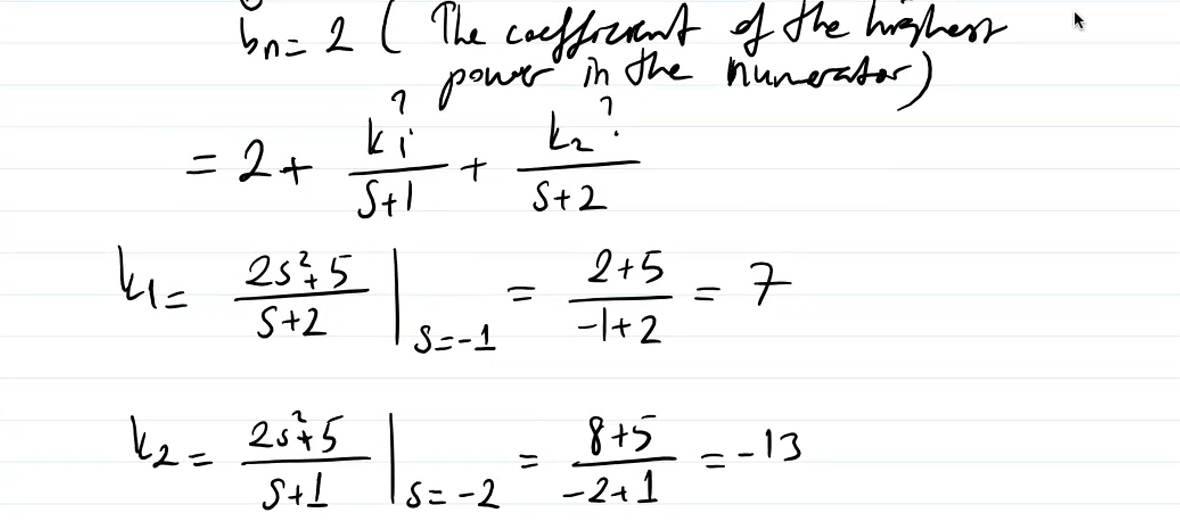 bn = 2 ( The coefficient of the highest
power in the numerator)
= 2 + k1?/(s+1) + k2?/(s+2)
k1 = (2s²+5)/(s+2) | s=-1 = (2+5)/(-1+2) = 7
k2 = (2s²+5)/(s+1) | s=-2 = (8+5)/(-2+1) = -13